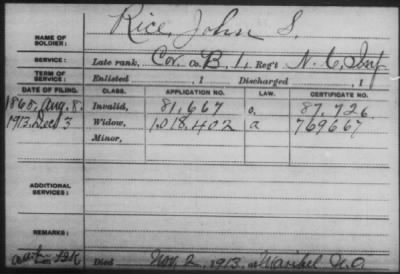 NAME OF SOLDIER: Rice, John S.
SERVICE: Late rank, Co. B, 1, Reg't N. C. Inf
TERM OF SERVICE: Enlisted , 1 Discharged , 1
DATE OF FILING. CLASS. APPLICATION NO. LAW. CERTIFICATE NO.
Aug. 8. Invalid, 81,667 87,726
1913. Dec 3 Widow, 1,018,402 a 769667
Minor,
ADDITIONAL SERVICES:
REMARKS:
Died Nov. 2, 1913, at